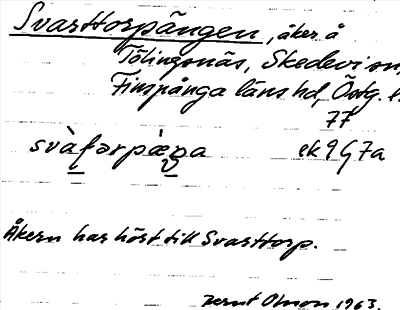 Svarttorpängen, åker å
Tölingsnäs, Skedevi sn,
Finspånga läns hd, Östg. l.
77
svàfǝrpæŋa ek 9G7a
Åkern har hört till Svarttorp.
Bernt Olsson 1963.